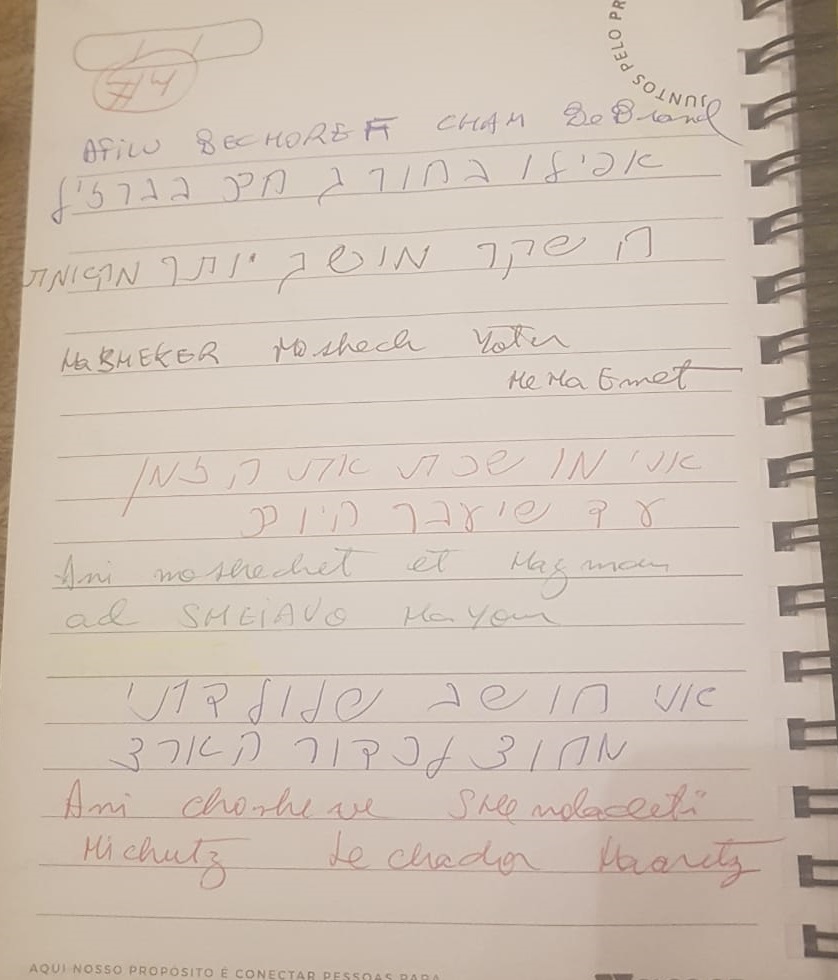 JUNTOS PELO PR
74
AFILU BECHOREF CHAM BeBrand
אפילו בחורג חם בברזיל
ה שקר מושך יותר מהאמת
HaSHEKER Moshech Yoter
MeHaEmet
אני מו שכת את ה זמן
ע ד שיעבר היום
Ani moshechet et Hazman
ad SHEIAVO HaYom
אני חושב שנולדתי
מחוץ לכדור הארצ
Ani choshe ve SHe noladeti
Michutz Le chador Haaretz
AQUI NOSSO PROPÓSITO É CONECTAR PESSOAS PARA